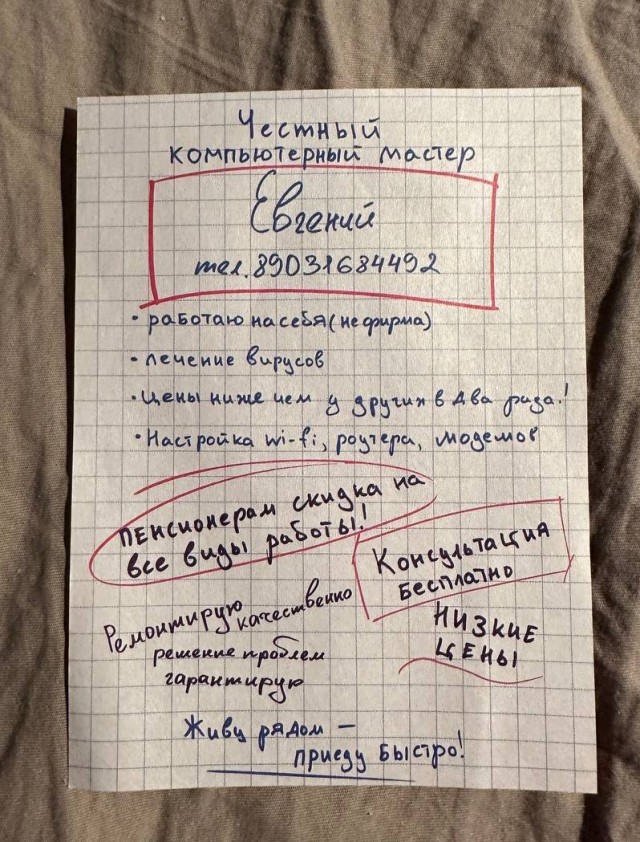 Честный
компьютерный мастер
Евгений
тел. 89031684492
• работаю на себя (не фирма)
• лечение вирусов
• Цены ниже чем у других в два раза!
• Настройка wi-fi, роутера, модемов
Пенсионерам скидка на
все виды работы!
Консультация
бесплатно
Ремонтирую качественно
решение проблем
гарантирую
НИЗКИЕ
ЦЕНЫ
Живу рядом –
приеду быстро!